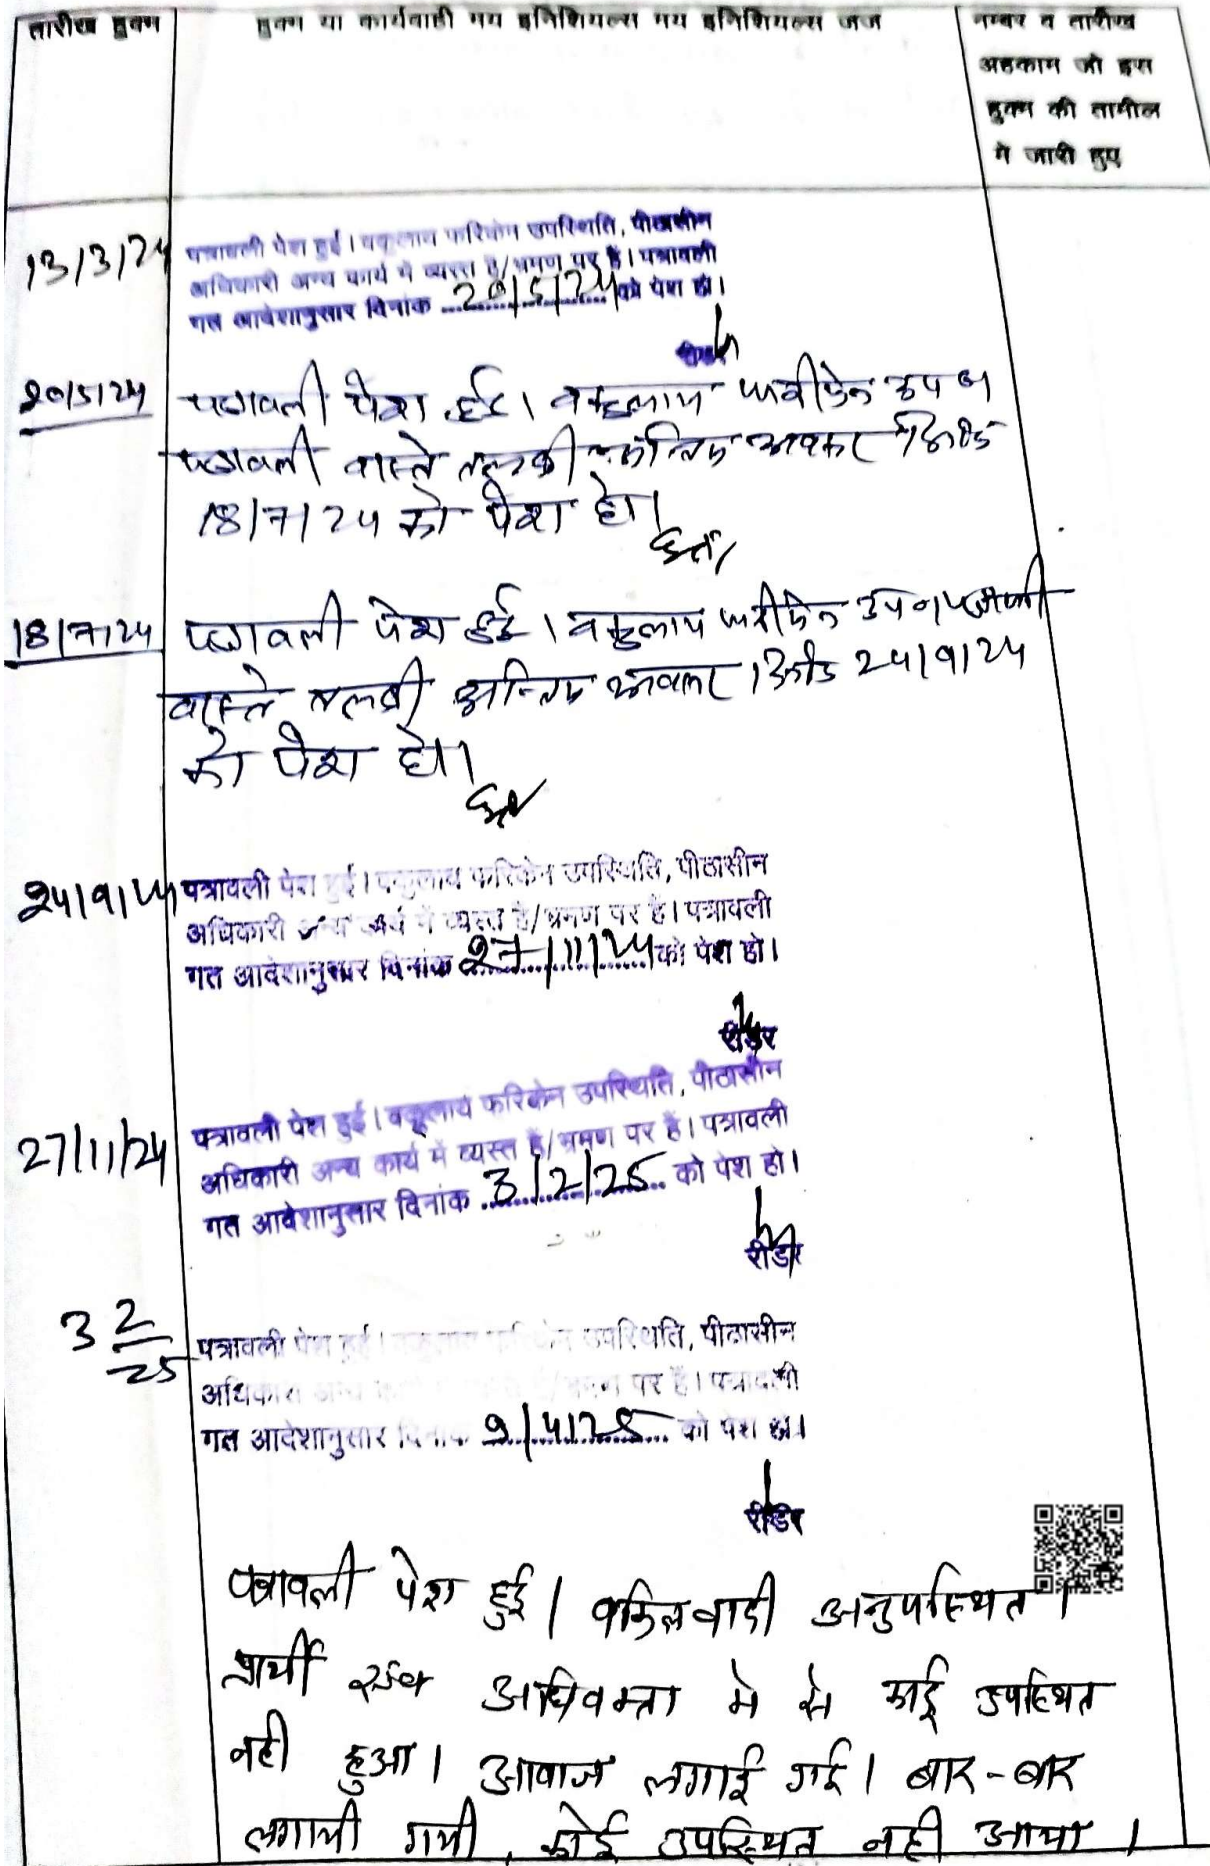 तारीख हुक्म
हुक्म या कार्यवाही मय इनिशियल्स मय इनिशियल्स जज
नम्बर व तारीख
अहकाम जो इस
हुक्म की तामील
में जारी हुए
13/3/24
पत्रावली पेश हुई। वकुलाय फरिकेन उपस्थिति, पीठासीन
अधिकारी अन्य कार्य में व्यस्त है/भ्रमण पर है। पत्रावली
गत आवेशानुसार दिनांक 20/5/24 को पेश हो।
रीडर
20/5/24
पत्रावली पेश हुई। वकुलाय फरीकेन उप०
पत्रावली वास्ते तलबी अन्तिम अवसर दिनांक
18/7/24 को पेश हो।
18/7/24
पत्रावली पेश हुई। वकुलाय फरीकेन उप० पत्रावली
वास्ते तलबी अन्तिम अवसर दिनांक 24/9/24
को पेश हो।
24/9/24
पत्रावली पेश हुई। वकुलाय फरिकेन उपस्थिति, पीठासीन
अधिकारी अन्य कार्य में व्यस्त है/भ्रमण पर है। पत्रावली
गत आदेशानुसार दिनांक 27/11/24 को पेश हो।
रीडर
27/11/24
पत्रावली पेश हुई। वकूलाय फरिकेन उपस्थिति, पीठासीन
अधिकारी अन्य कार्य में व्यस्त है/भ्रमण पर है। पत्रावली
गत आवेशानुसार दिनांक 3/2/25 को पेश हो।
रीडर
3 2/25
पत्रावली पेश हुई। वकुलाय फरिकेन उपस्थिति, पीठासीन
अधिकारी अन्य कार्य में व्यस्त है/भ्रमण पर है। पत्रावली
गत आदेशानुसार दिनांक 9/4/25 को पेश हो।
रीडर
पत्रावली पेश हुई। वकिलवादी अनुपस्थित।
प्रार्थी एवं अधिवक्ता मे से कोई उपस्थित
नही हुआ। आवाज लगाई गई। बार-बार
लगायी गयी, कोई उपस्थित नही आया।